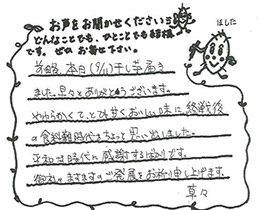 お声をお聞かせください
どんなことでも、ひとことでも結構
です。ぜひ お寄せ下さい。
はした
前略 本日(9/11)干し芋届き
ました。早々とありがとうございます。
やわらかくて、とても甘くおいしい味に終戦後
の食料難時代をちょっと思い出しました。
平和な時代に感謝するばかりです。
御社のますますのご発展をお祈り申し上げます。
草々